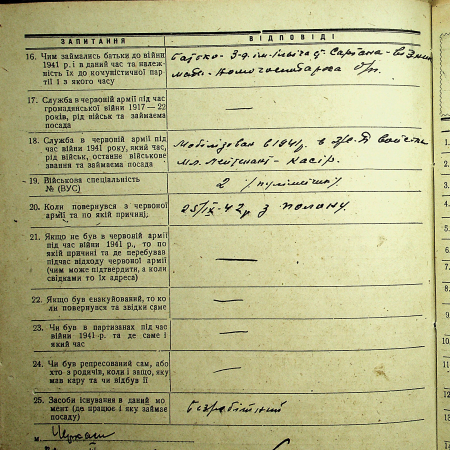 ЗАПИТАННЯ
ВІДПОВІДІ
16. Чим займались батьки до війни
1941 р. і в даний час та належ-
ність їх до комуністичної пар-
тії і з якого часу
17. Служба в червоній армії під час
громадянської війни 1917—22
років, рід військ та займаєма
посада
—
18. Служба в червоній армії під
час війни 1941 року, який час,
рід військ, останнє військове
звання та займаєма посада
Мобілізован в 1941 р. в
мл. лейтенант - касір.
19. Військова спеціальність
№ (ВУС)
2
20. Коли повернувся з червоної
армії та по якій причині,
25/IX-42 р. з полону.
21. Якщо не був в червоній армії
під час війни 1941 р., то по
якій причині та де перебував
підчас відходу червоної армії
(чим може підтвердити, а коли
свідками то їх адреса)
—
22. Якщо був евакуйований, то ко
ли повернувся та звідки саме
—
23. Чи був в партизанах під час
війни 1941 р. та де саме і
який час
—
24. Чи був репресований сам, або
хто з родичів, коли і защо, яку
мав кару та чи відбув її
—
25. Засоби існування в даний мо
мент (де працює і яку займає
посаду)
безробітний
м. Черкаси